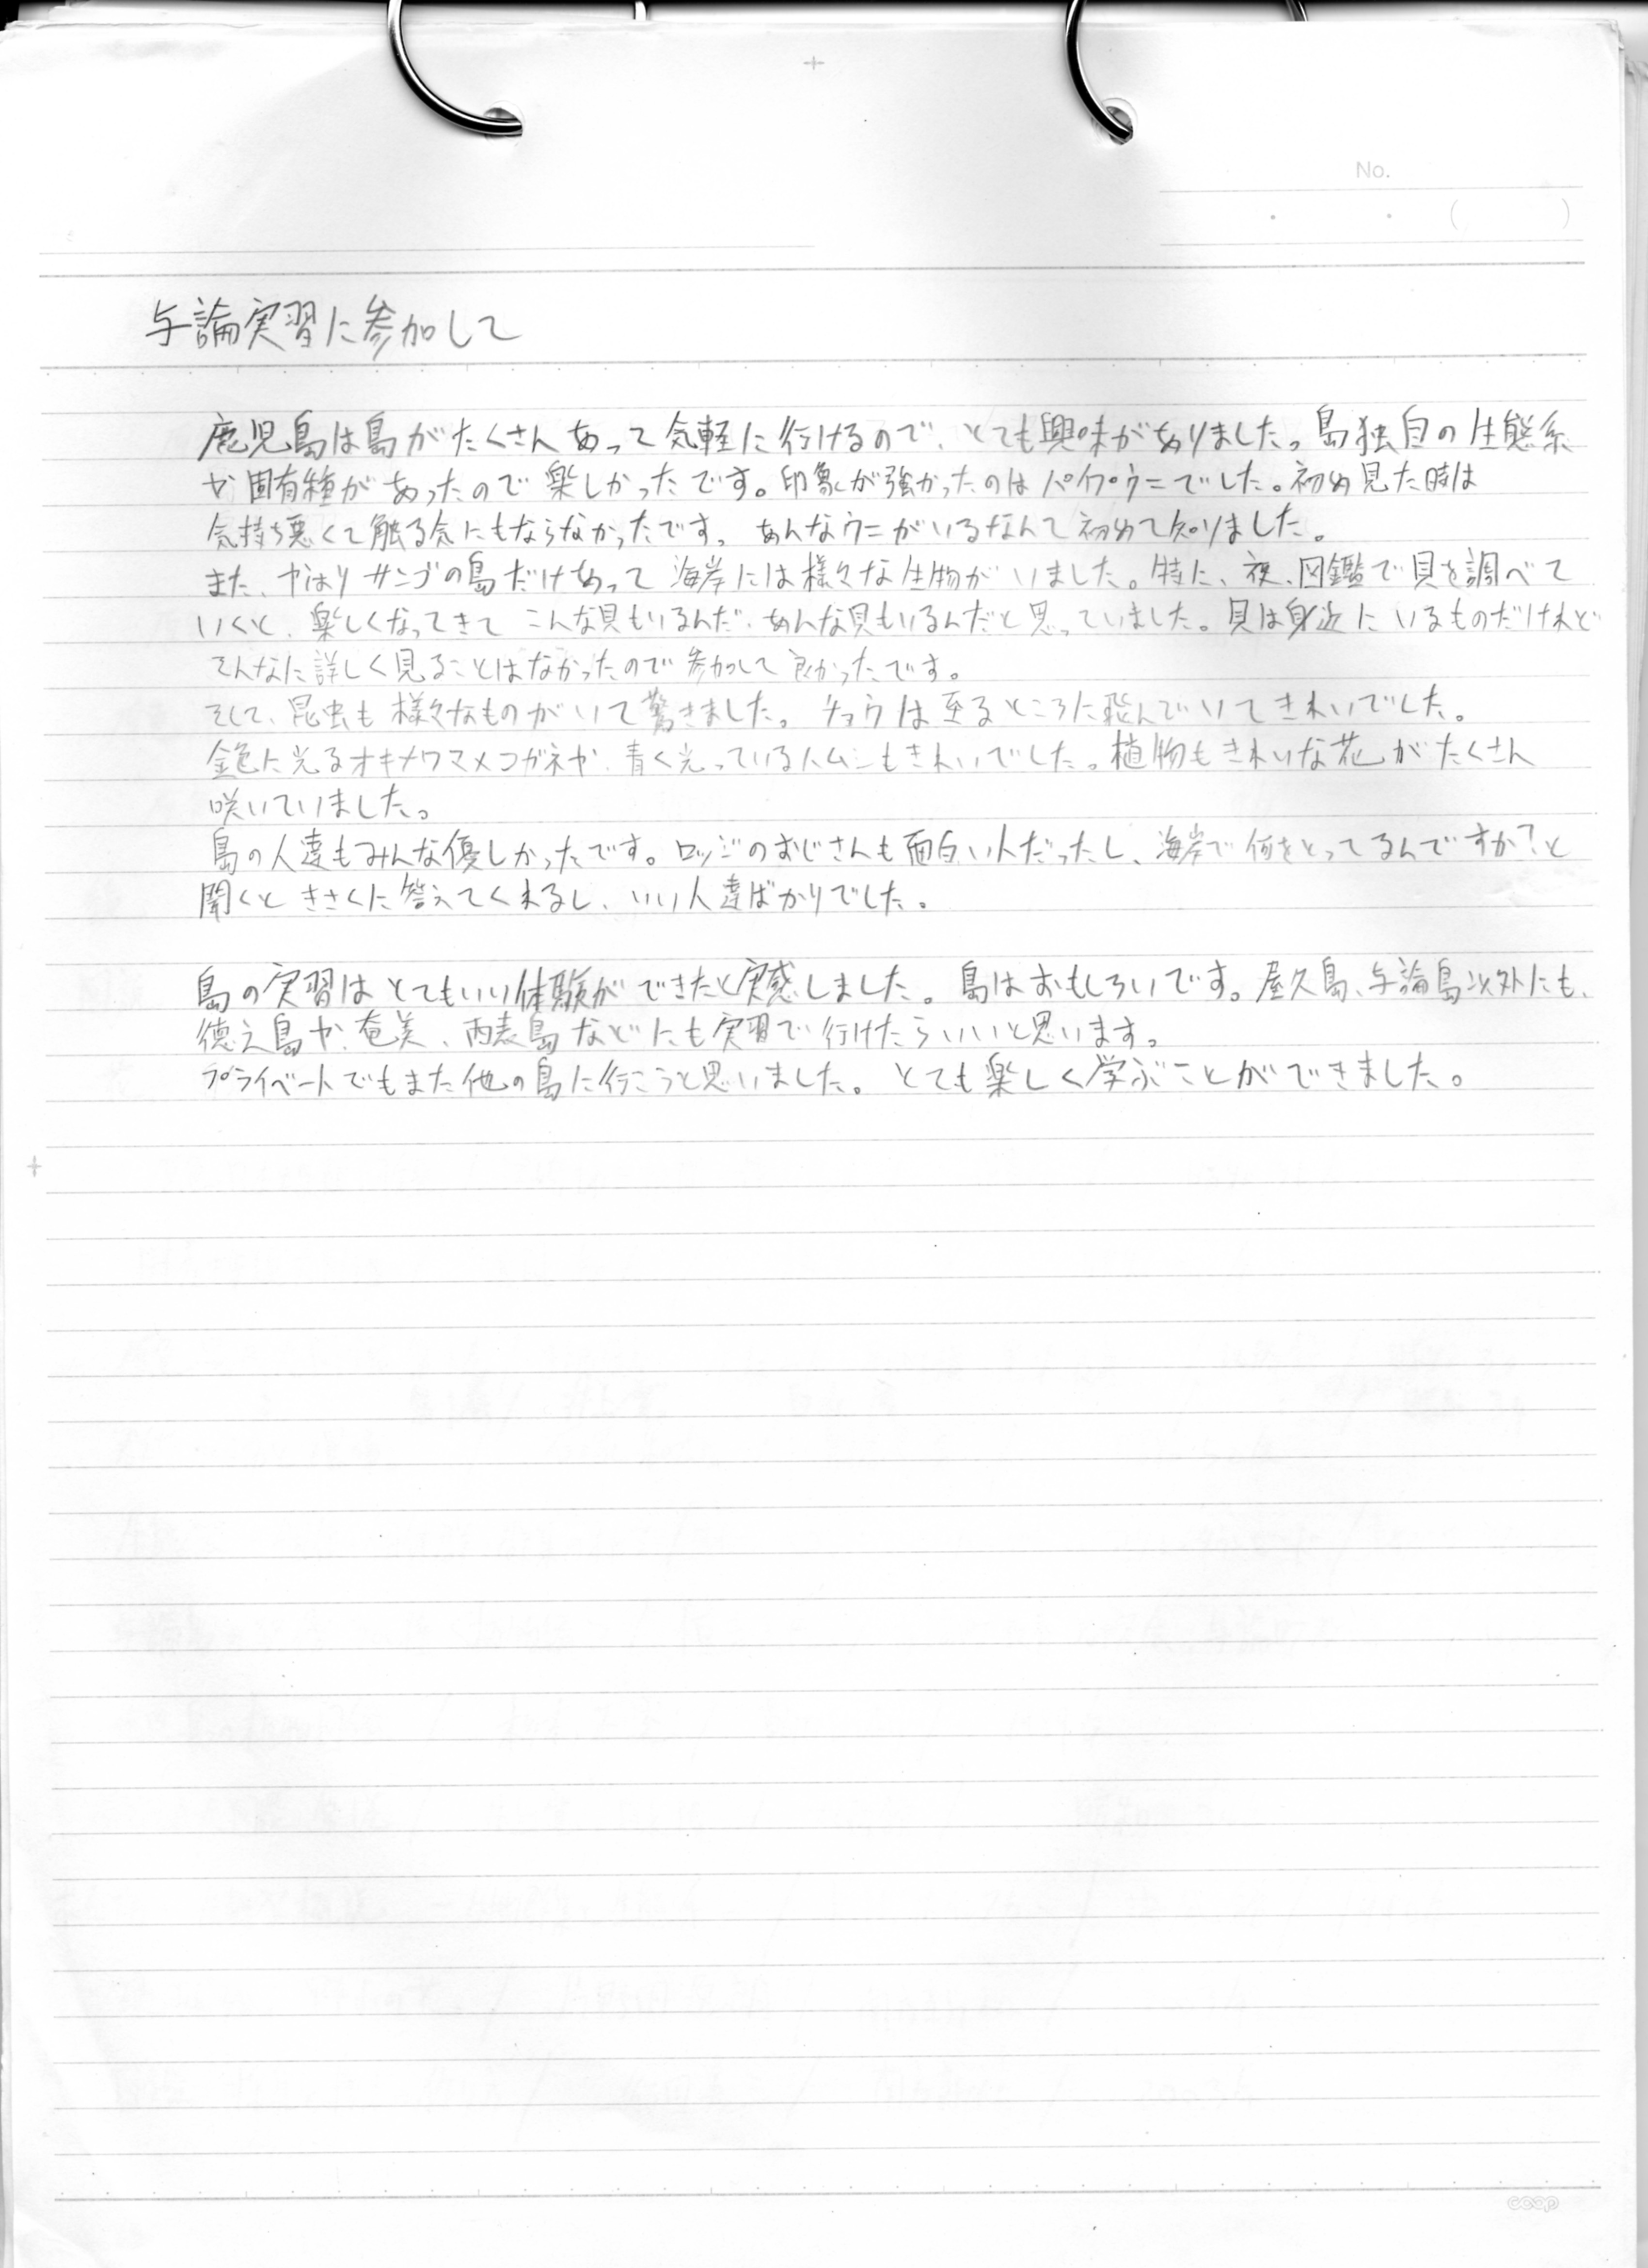 No.
与論実習に参加して
鹿児島は島がたくさんあって気軽に行けるので、とても興味がありました。島独自の生態系
や固有種があったので楽しかったです。印象が強かったのはパイプウニでした。初め見た時は
気持ち悪くて触る気にもならなかったです。あんなウニがいるなんて初めて知りました。
また、やはりサンゴの島だけあって海岸には様々な生物がいました。特に、夜、図鑑で貝を調べて
いくと、楽しくなってきてこんな貝もいるんだ、あんな貝もいるんだと思っていました。貝は身近にいるものだけれど
そんなに詳しく見ることはなかったので参加して良かったです。
そして、昆虫も様々なものがいて驚きました。チョウは至るところに飛んでいてきれいでした。
金色に光るオキナワマメコガネや、青く光っているハムシもきれいでした。植物もきれいな花がたくさん
咲いていました。
島の人達もみんな優しかったです。ロッジのおじさんも面白い人だったし、海岸で何をとってるんですか？と
聞くときさくに答えてくれるし、いい人達ばかりでした。
島の実習はとてもいい体験ができたと実感しました。島はおもしろいです。屋久島、与論島以外にも、
徳之島や、奄美、西表島などにも実習で行けたらいいと思います。
プライベートでもまた他の島に行こうと思いました。とても楽しく学ぶことができました。
coop